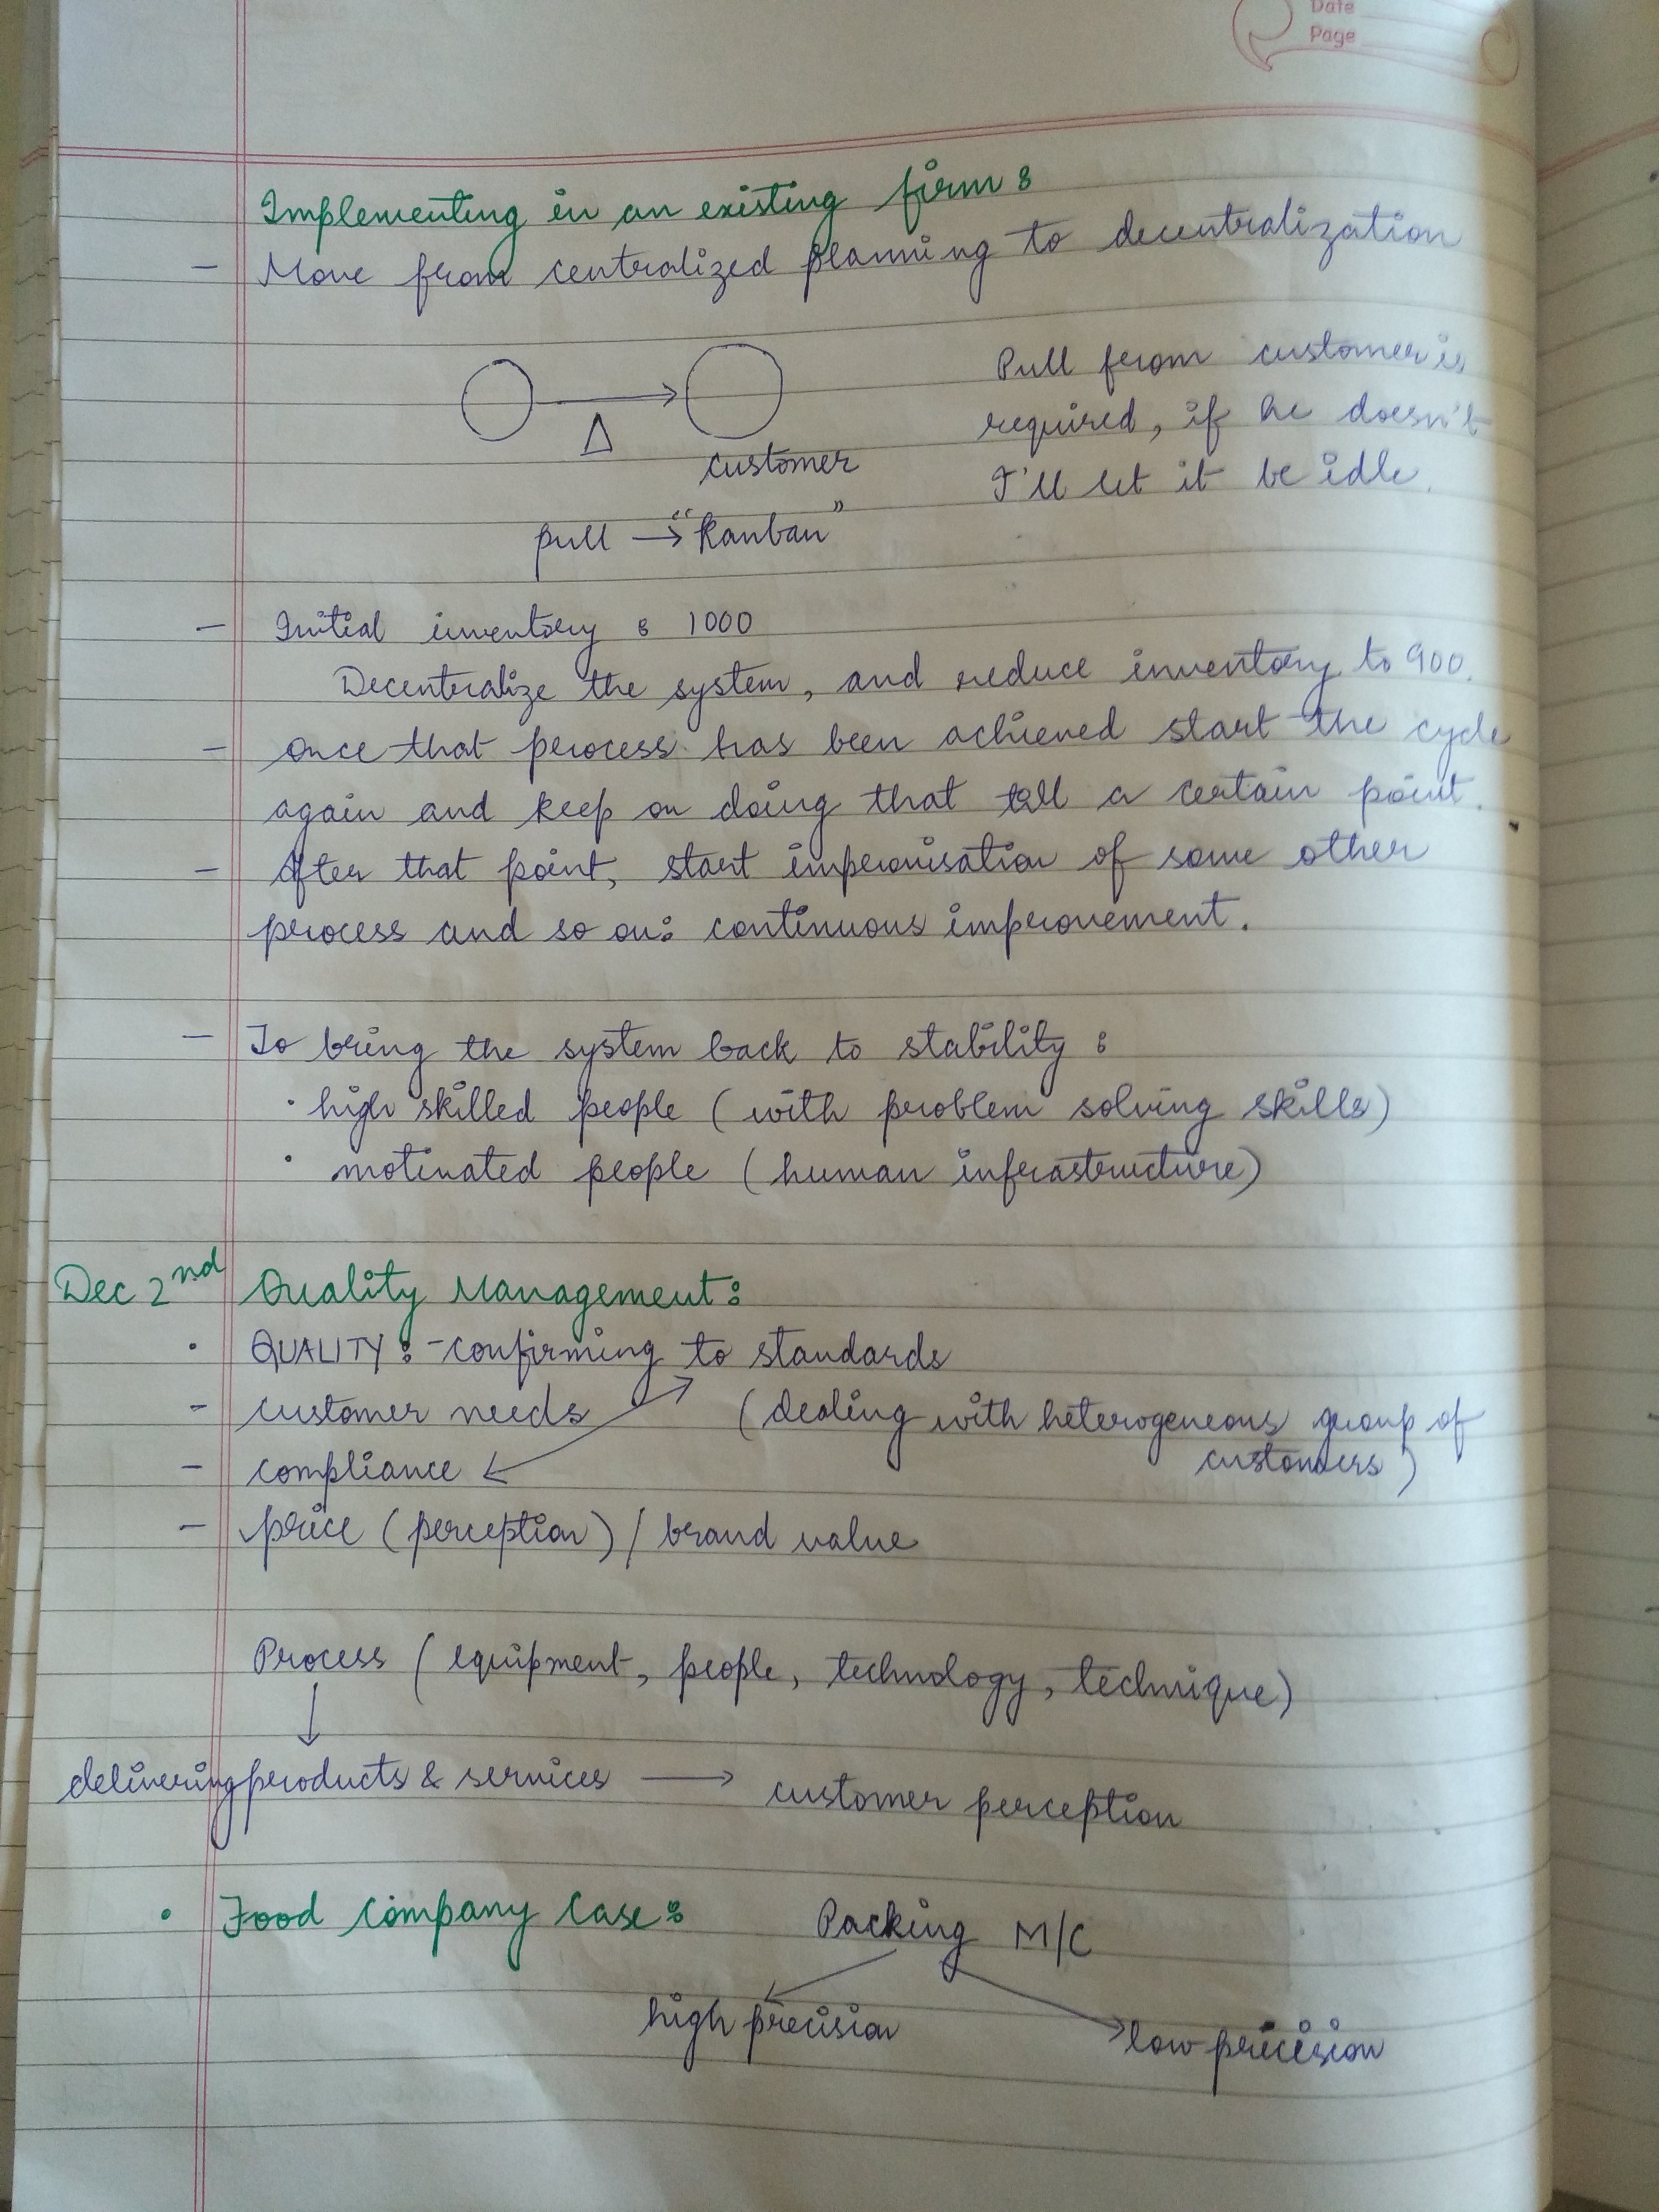 Date
Page
Implementing in an existing firm:
- Move from centralized planning to decentralization
Pull from customer is
required, if he doesn't
I'll let it be idle.
Δ
customer
pull → "Kanban"
- Initial inventory : 1000
Decentralize the system, and reduce inventory to 900.
- once that process has been achieved start the cycle
again and keep on doing that till a certain point.
- After that point, start improvisation of some other
process and so on: continuous improvement.
- To bring the system back to stability :
· high skilled people (with problem solving skills)
· motivated people (human infrastructure)
Dec 2nd Quality Management:
· QUALITY: - confirming to standards
- customer needs (dealing with heterogeneous group of
customers)
- compliance
- price (perception) / brand value
Process (equipment, people, technology, technique)
↓
delivering products & services → customer perception
· Food Company Case: Packing M/C
high precision
low precision